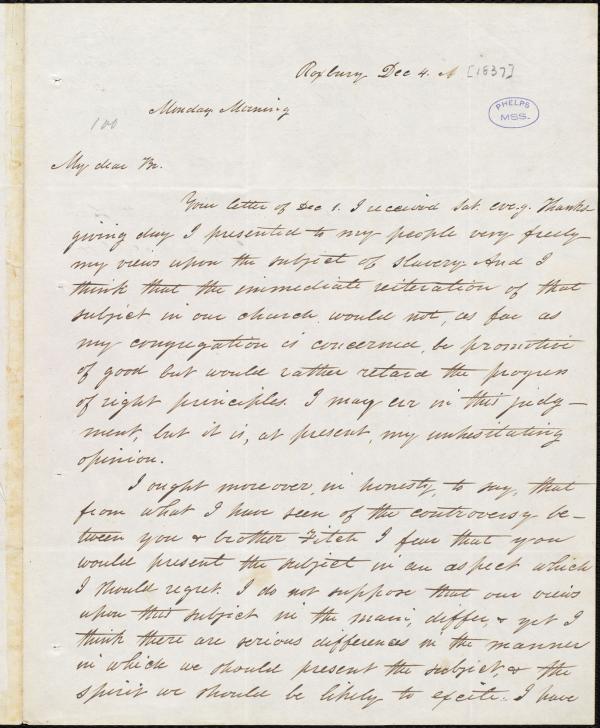 Roxbury Dec 4. [1837]
PHELPS
MSS.
Monday Morning
100
My dear Br.
Your letter of Dec 1. I received Sat. eve.g. Thanks
giving day I presented to my people very freely
my views upon the subject of slavery. And I
think that the immediate reiteration of that
subject in our church would not, as far as
my congregation is concerned, be promotive
of good but would rather retard the progress
of right principles. I may err in this judg-
ment, but it is, at present, my unhesitating
opinion.
I ought moreover, in honesty, to say, that
from what I have seen of the controversy be-
tween you & brother Fitch I fear that you
would present the subject in an aspect which
I should regret. I do not suppose that our views
upon this subject in the main, differ, & yet I
think there are serious differences in the manner
in which we should present the subject, & the
spirit we should be likely to excite. I have